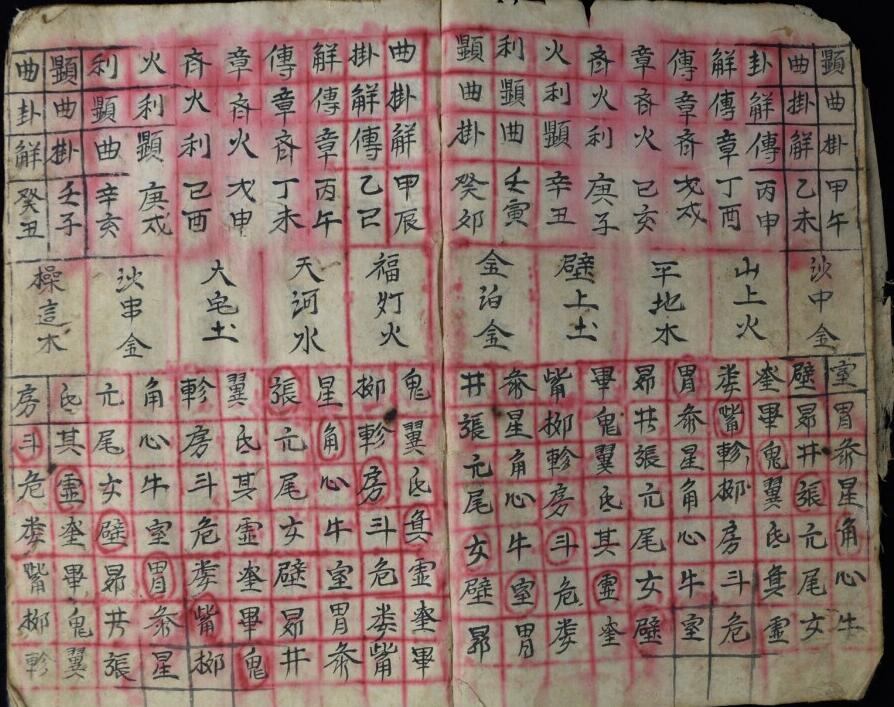 顯曲掛甲午
曲掛解乙未
卦解傳丙申
解傳章丁酉
傳章斉戊戌
章斉火己亥
斉火利庚子
火利顯辛丑
利顯曲壬寅
顯曲卦癸卯
沙中金
山上火
平地木
壁上土
金泊金
室胃参星角心牛
壁昴井張亢尾女
奎畢鬼翼氐其虚
娄觜軫柳房斗危
胃参星角心牛室
昴井張亢尾女壁
畢鬼翼氐其虚奎
觜柳軫房斗危娄
参星角心牛室胃
井張亢尾女壁昴
曲掛解甲辰
掛解傳乙巳
解傳章丙午
傳章斉丁未
章斉火戊申
斉火利己酉
火利顯庚戌
利顯曲辛亥
顯曲掛壬子
曲卦解癸丑
福灯火
天河水
大宅土
沙串金
操這木
鬼翼氐其虚奎畢
柳軫房斗危娄觜
星角心牛室胃参
張亢尾女壁昴井
翼氐其虚奎畢鬼
軫房斗危娄觜柳
角心牛室胃参星
亢尾女壁昴井張
氐其虚奎畢鬼翼
房斗危娄觜柳軫